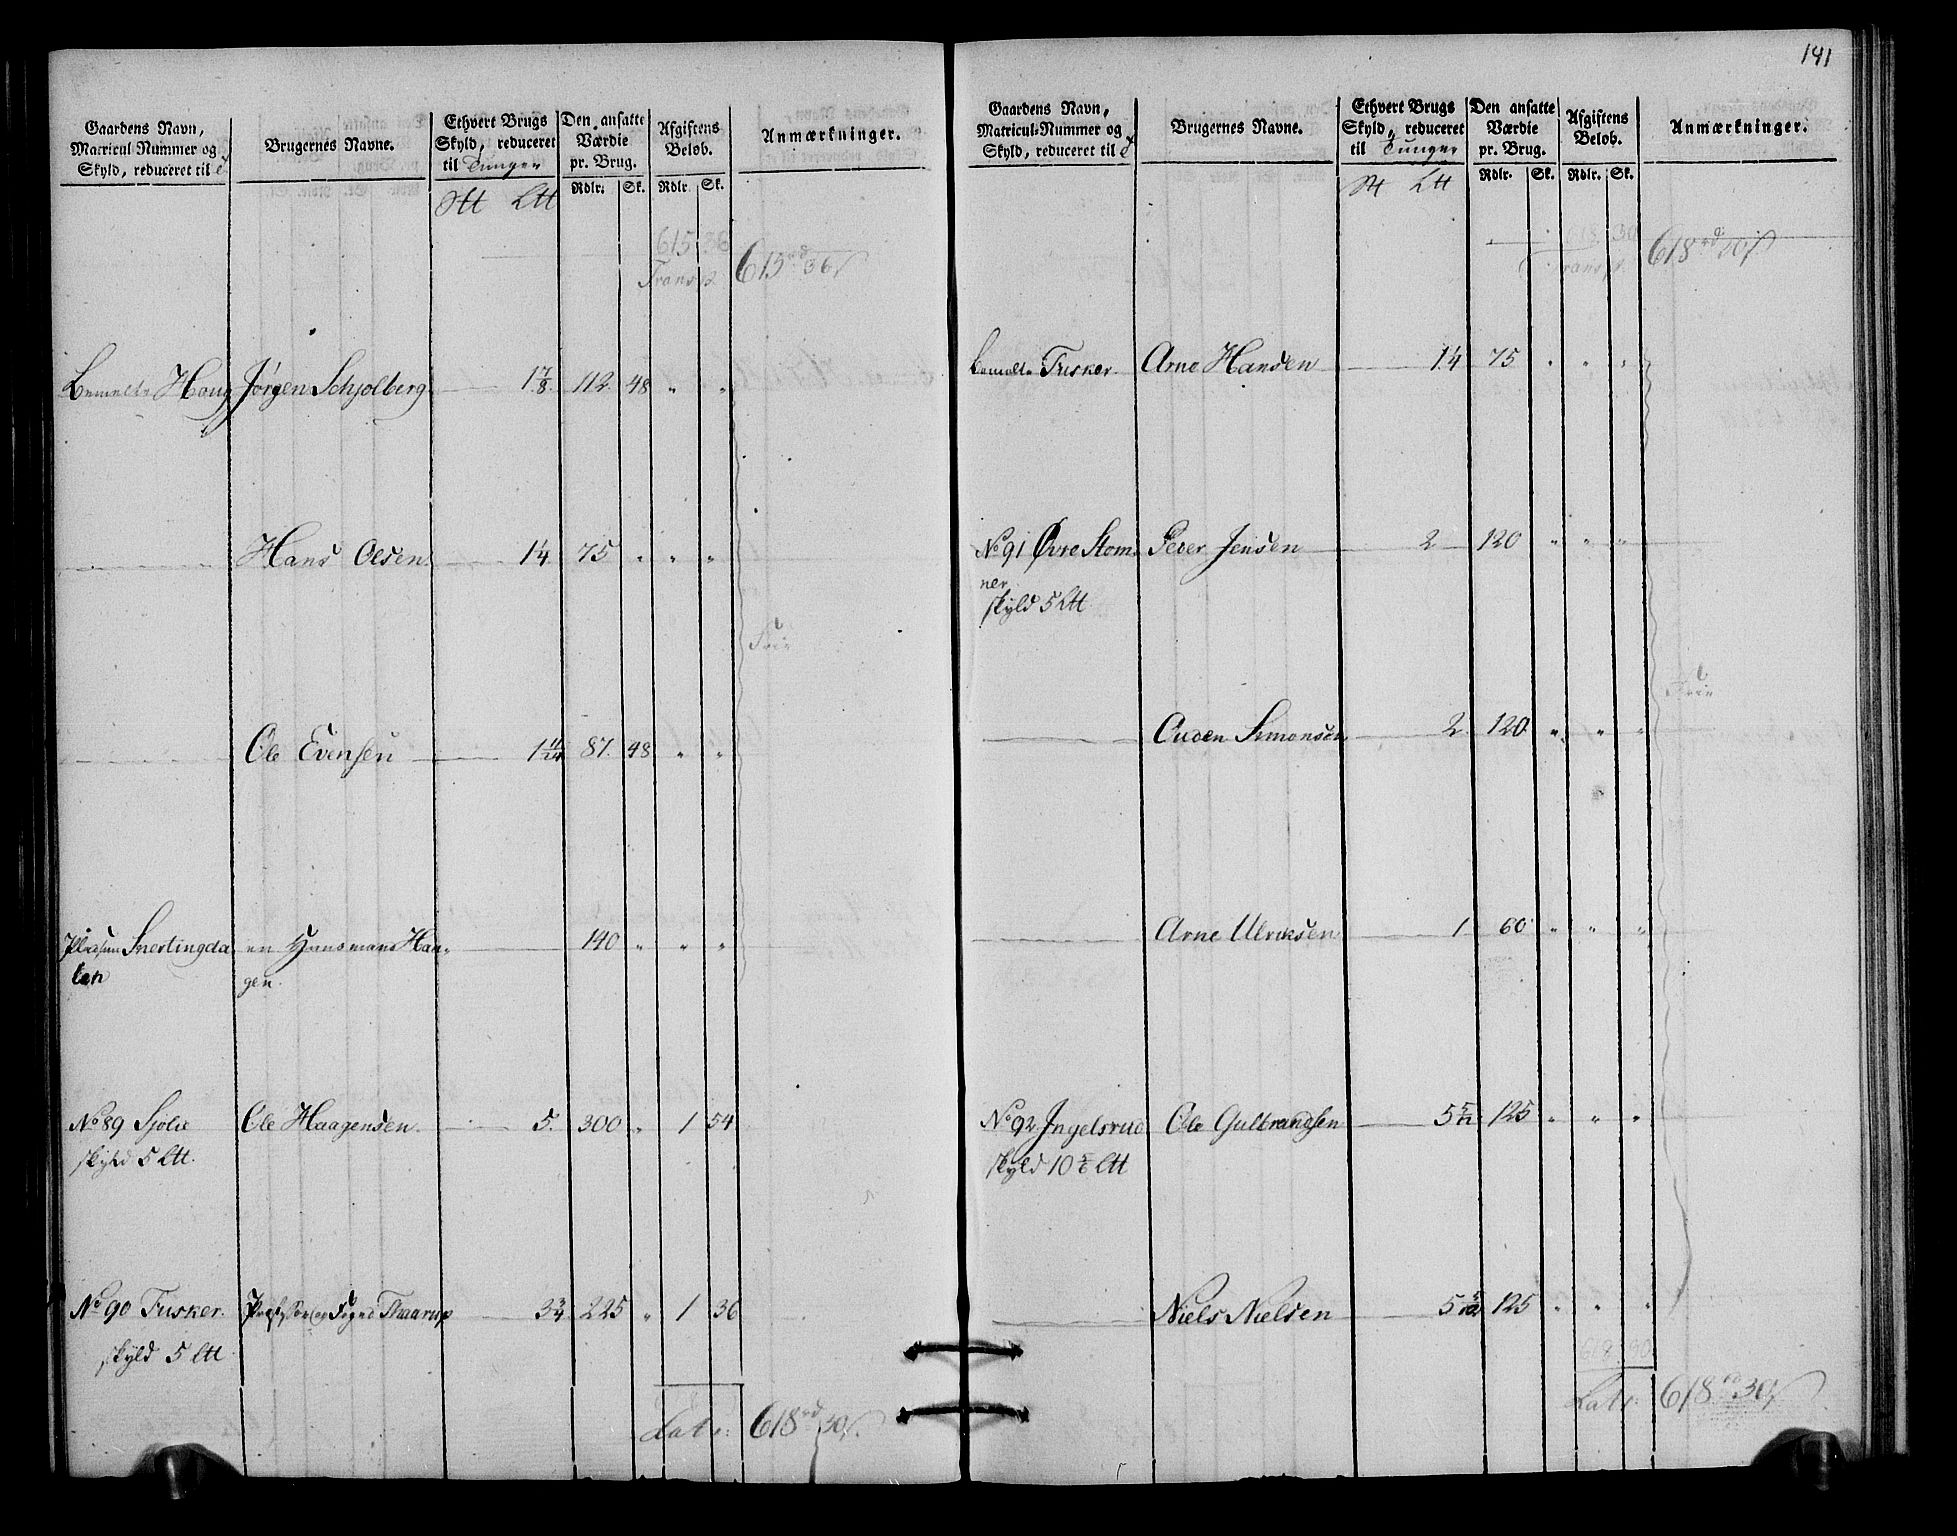 Gaardens Navn, Matricul Nummer og Skyld, reduceret til
Brugernes Navne.
Ethvert Brugs Skyld, reduceret til Tunger
Den ansatte Værdie pr. Brug.
Afgiftens Beløb.
Anmærkninger.
Rdlr. Sk. Rdlr. Sk.
Ltt
615 36
Transp. 615 rd 36
Houg Jørgen Schjolberg 1 7/8 112 48 " "
Hans Olsen 1 1/4 75 " " "
Frie
Ole Evensen 1 11/24 87 48 " "
Pladsen Snertingda en Huusmand Haa- 140 " " "
len gen
No 89 Sjolie Ole Haagensen 5 300 " 1 54
skyld 5 Ltt.
No 90 Fusker Thaarup 3 3/4 225 " 1 36
skyld 5 Ltt
Lats. 618 rd 30
141
Gaardens Navn, Matricul-Nummer og Skyld, reduceret til
Brugernes Navne.
Ethvert Brugs Skyld, reduceret til Tunger
Den ansatte Værdie pr. Brug.
Afgiftens Beløb.
Anmærkninger.
Rdlr. Sk. Rdlr. Sk.
Ltt
618 30
Transp. 618 rd 30
Fusker Arne Hansen 1 1/4 75 " " "
No 91 Øvre Stom- Peder Jensen 2 120 " " "
ner
skyld 5 Ltt
Frie
Auden Simonsen 2 120 " " "
Arne Ulriksen 1 60 " " "
No 92 Ingelsrud Ole Gulbrandsen 5 5/12 125 " " "
skyld 10 5/6 Ltt
Niels Nielsen 5 5/12 125 " " "
618 30
Lats. 618 rd 30